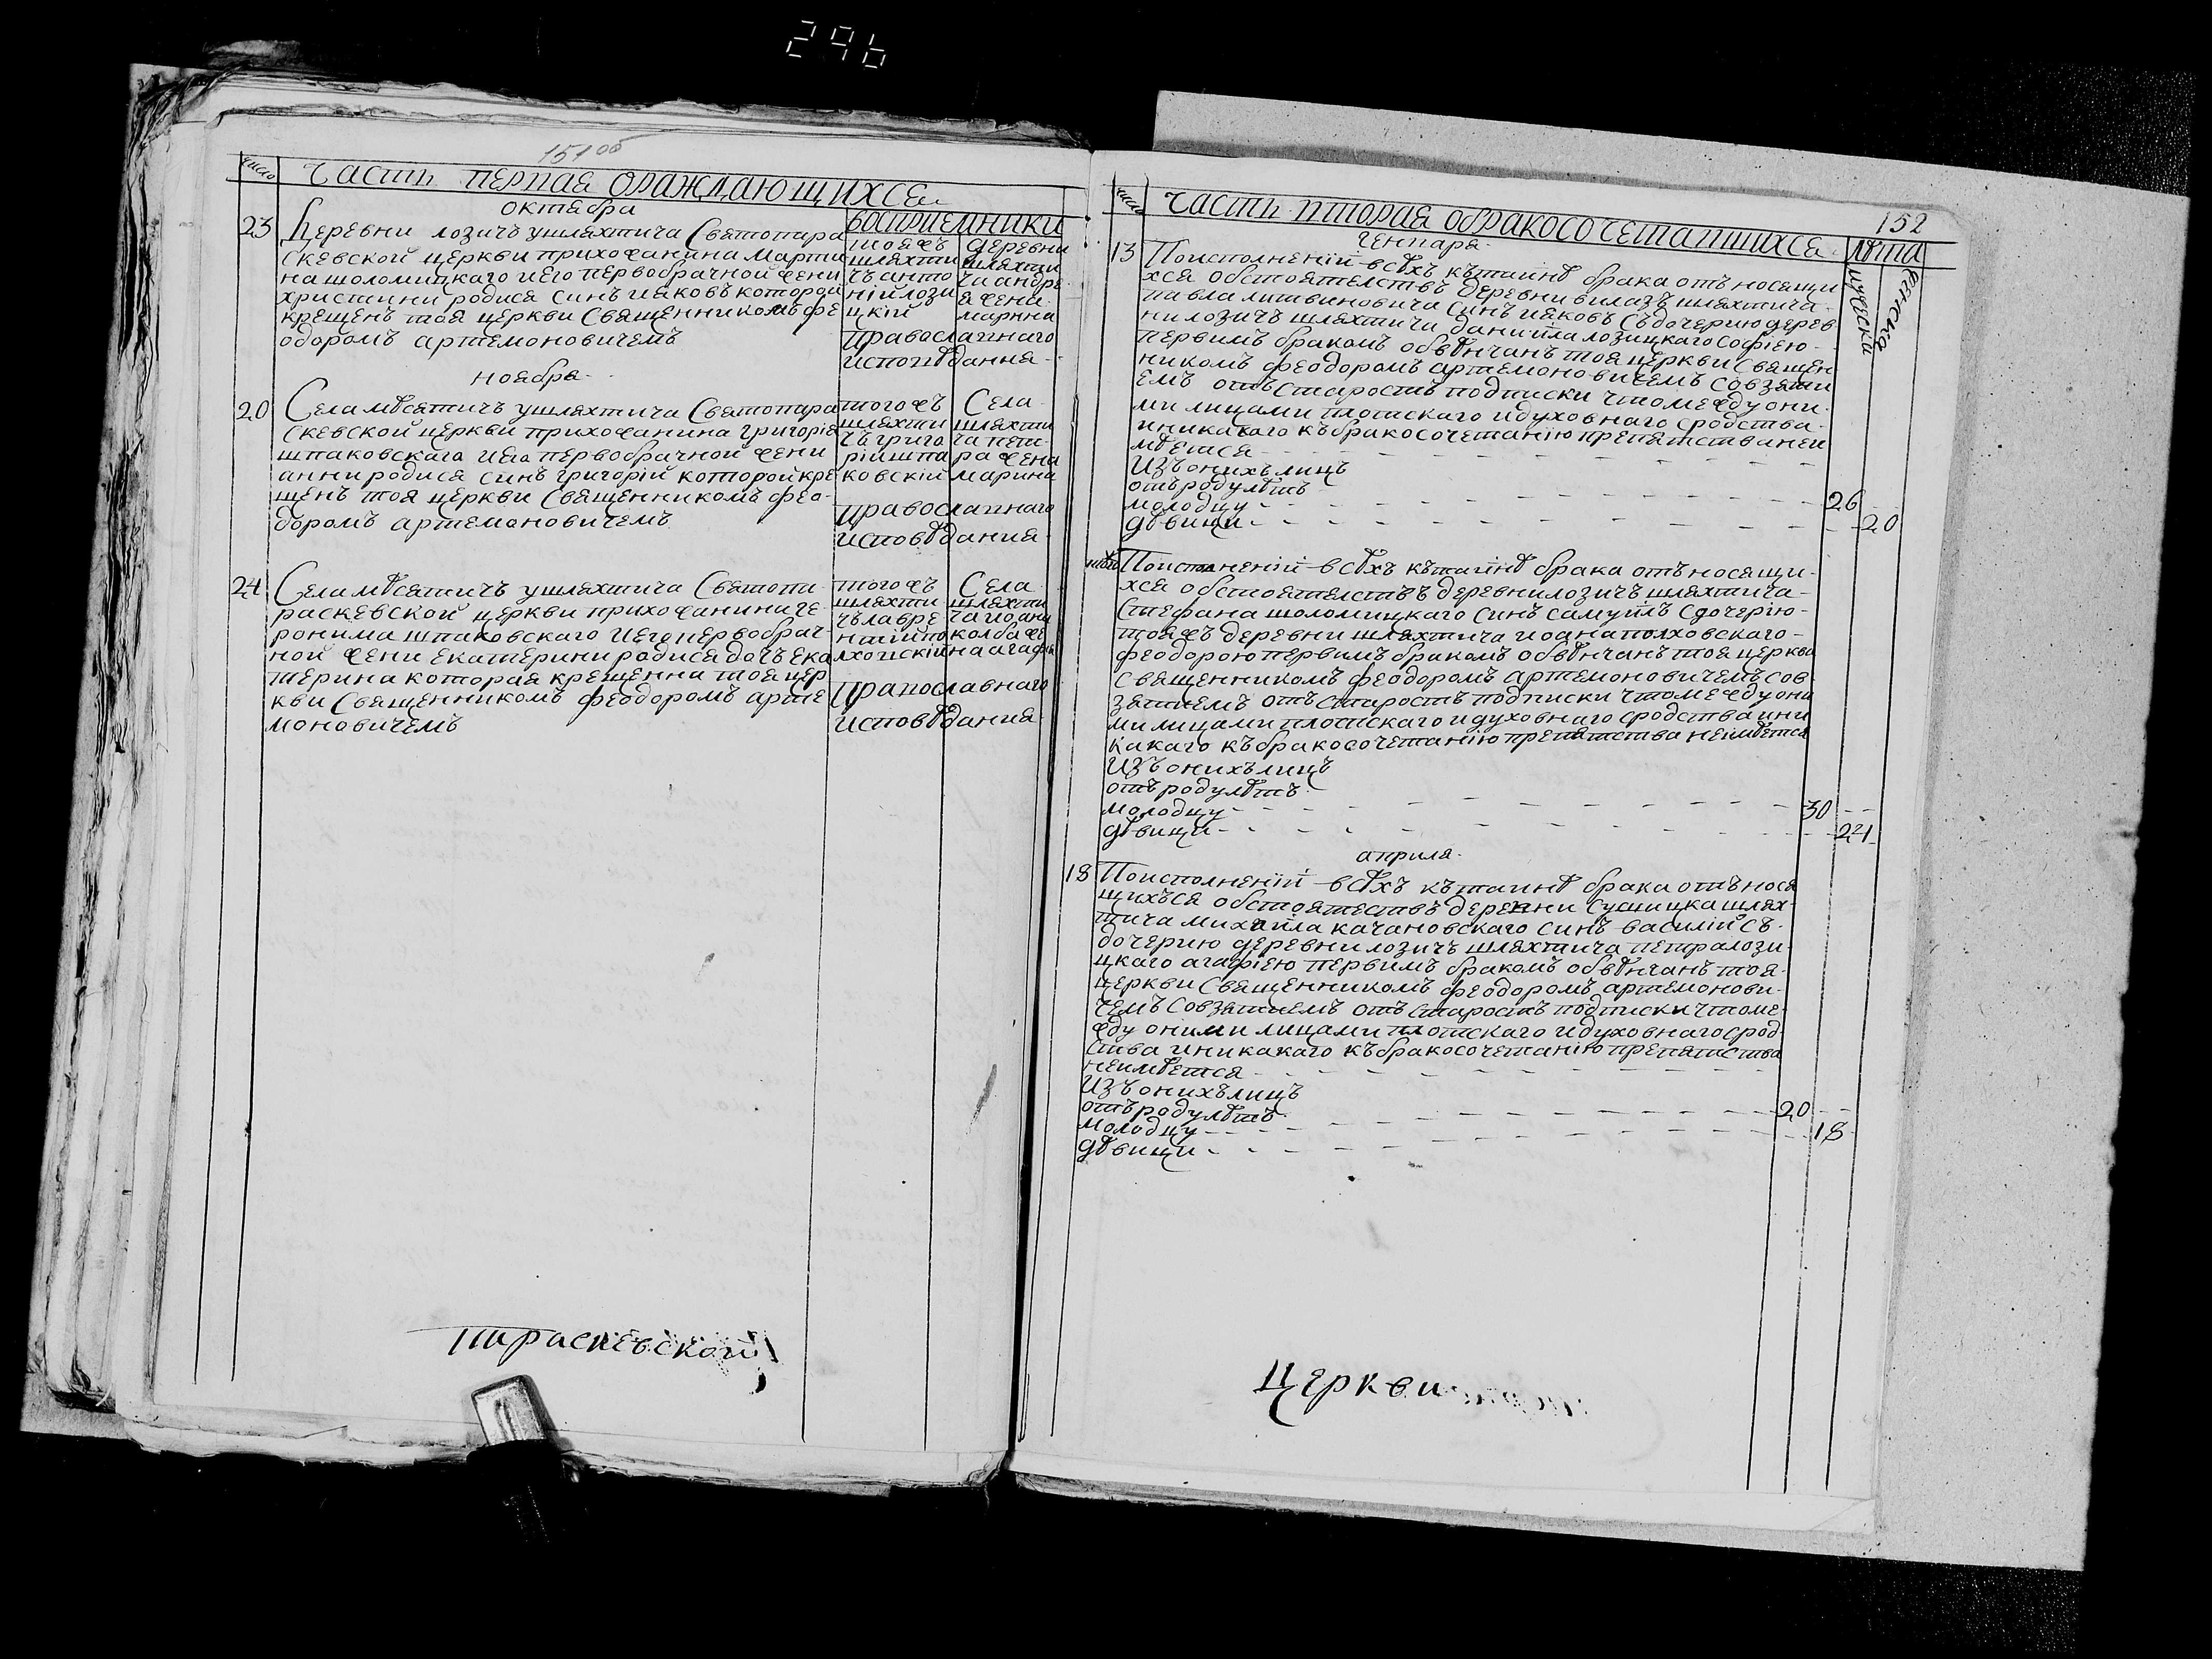 296
151 об
число
Часть перпая ораждающихся
октября
восприемники
23
Деревни лозичъ ушляхтича Святопара
скевской церкви прихожанина Марти
на шоломицкаго иего первобрачной жени
христини родися синъ ияковъ которой
крещенъ тоя церкви Священникомъ фе
одоромъ артемоновичемъ
тояжъ
шляхти
чъ анто
ній лози
цкій
деревни
шляхти
ча андре
я жена
марина
православнаго
исповѣдания
ноября
20
Села мѣсятичъ ушляхтича Святопара
скевской церкви прихожанина григорія
шпаковскаго иего первобрачной жени
анни родися синъ григорій которой кре
щенъ тоя церкви Священникомъ фео-
доромъ артемоновичемъ
тогожъ
шляхти
чъ григо
рій шпа
ковскій
Села
шляхти
ча пет
ра жена
марина
православнаго
исповѣдания
24
Села мѣсятичъ ушляхтича Святопа-
раскевской церкви прихожанина ге-
ронима шпаковскаго иего первобрач-
ной жени екатерини родися дочъ ека
терина которая крещенна тоя цер
кви Священникомъ феодоромъ арте
моновичемъ
тогожъ
шляхти
чъ лавре
нтій по
лховскій
Села
шляхти
ча иоана
колба же
на агафия
православнаго
исповѣдания
параскевской
152
число
Часть пторая обракосочетапшихся
генпаря
лѣта
мужеска
женска
13
Поисполненій всѣхъ кътаинѣ брака отъносящи
хся обстоятелствъ деревни вилазъ шляхтича
павла литвиновича синъ ияковъ съдочерию дерев
ни лозичъ шляхтича даниіла лозицкаго софіею
первимъ бракомъ обвѣнчанъ тоя церкви Священ
никомъ феодоромъ артемоновичемъ совзяти
емъ отъ старостъ подписки чтомежду они
ми лицами плотскаго идуховнаго сродства
иникакаго къбракосочетанію препятства неи
мѣется
Изъ онихъ лицъ
отъроду лѣтъ
молодцу 26
дѣвици 20
Поисполненій всѣхъ кътаинѣ брака отъносящи
хся обстоятелствъ деревни лозичъ шляхтича
Стефана шоломицкаго синъ самуилъ сдочерію
тояжъ деревни шляхтича иоана полховскаго
феодорою первимъ бракомъ обвѣнчанъ тоя церкви
Священникомъ феодоромъ артемоновичемъ сов
зятиемъ отъ старостъ подписки чтомежду они
ми лицами плотскаго идуховнаго сродства ини
какаго къбракосочетанію препятства неимѣется
Изъ онихъ лицъ
отъроду лѣтъ
молодцу 30
дѣвици 24
априля
18
Поисполненій всѣхъ кътаинѣ брака отънося
щихъся обстоятествъ деревни Сушицка шлях-
тича михаила качановскаго синъ василій съ
дочерию деревни лозичъ шляхтича петра лози
цкаго агафіею первимъ бракомъ обвѣнчанъ тоя
церкви Священникомъ феодоромъ артемонови-
чемъ совзятиемъ отъ старостъ подписки чтоме-
жду оними лицами плотскаго идуховнаго срод
ства иникакаго къбракосочетанію препятства
неимѣется
Изъ онихъ лицъ
отъроду лѣтъ 20
молодцу 18
дѣвици
церкви